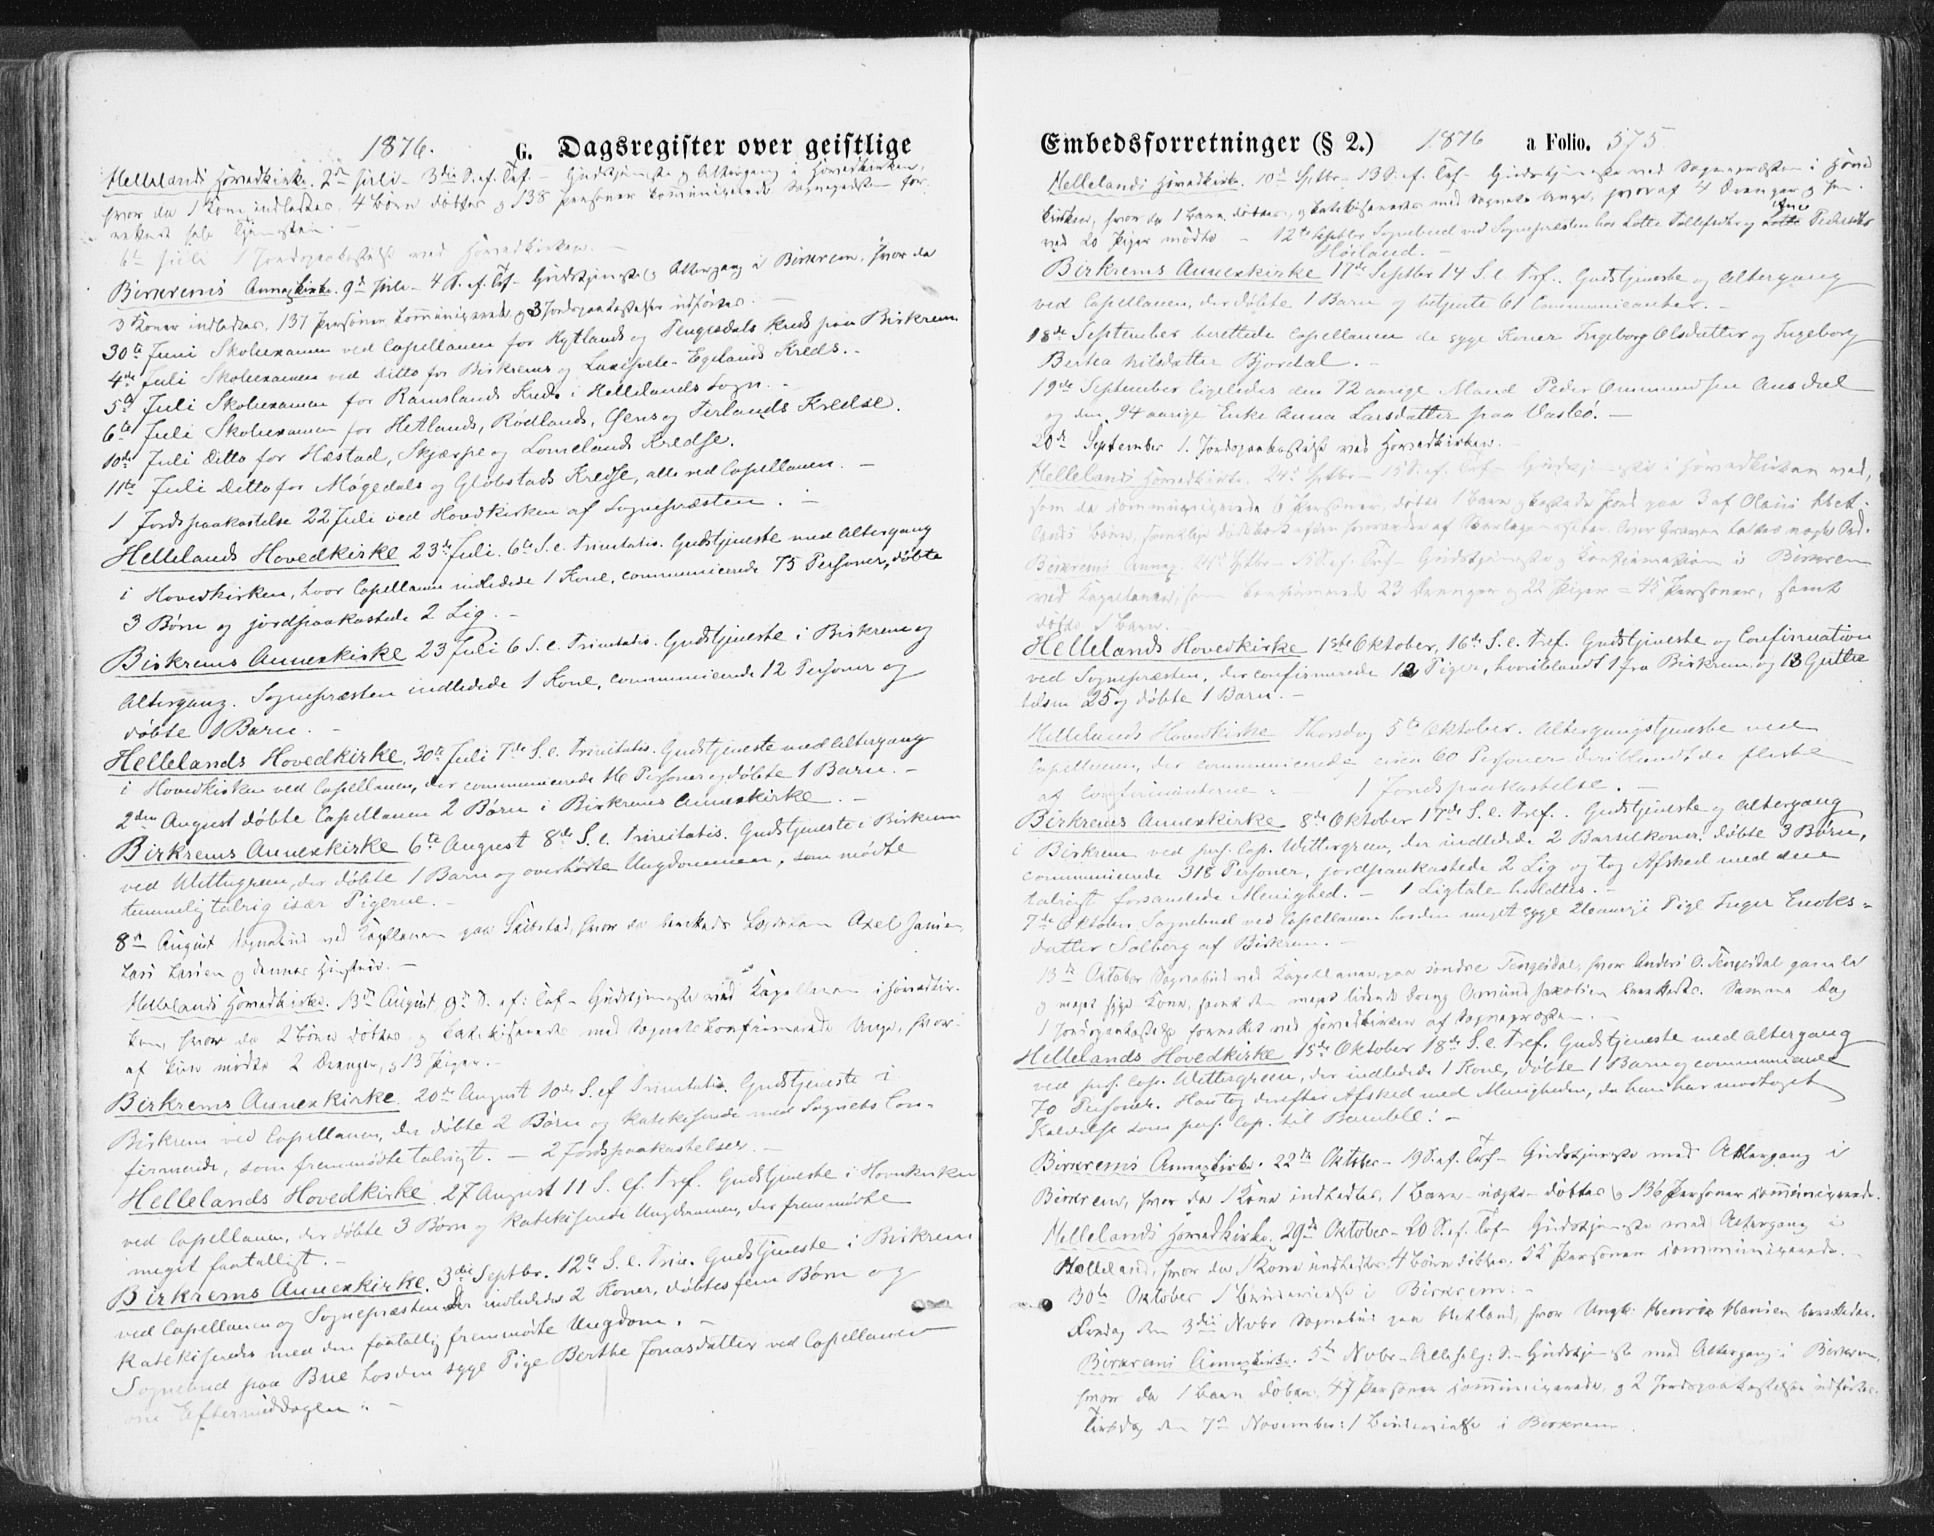 1876. G. Dagsregister over geistlige
Hellelands Hovedkirke. 2den Juli - 3die S. ef. Tref - Gudstjeneste og Altergang i Hovedkirken,
hvor da 1 Kone indledtes, 4 Børn døbtes og 138 Personer kommunicerede. Sognepræsten for-
rettede hele Tjenesten. -
6te Juli 1 Jordpaakastelse ved Hovedkirken. -
Birkrems Annexkirke. 9de Juli - 4 S. ef. Tref - Gudstjeneste og Altergang i Birkrem, hvor da
3 Koner indledtes, 137 Personer kommunicerede og 3 Jordpaakastelser udførtes. -
30te Juni Skoleexamen ved Capellanen for Hytlands og Tengesdals Kreds paa Birkrem.
4de Juli Skoleexamen ved Ditto for Birkrems og Egelands Kreds. -
5te Juli Skoleexamen for Ramslands Kreds i Hellelands Sogn. -
6te Juli Skoleexamen for Hetlands, Rødlands, og Terlands Kredse.
10de Juli Ditto for Hæstad, Skjærpe og Lomelands Kredse.
11te Juli Ditto for Møgedals og Gløbstads Kredse, alle ved Capellanen. -
1 Jordspaakastelse 22 Juli ved Hovedkirken af Sognepræsten. -
Hellelands Hovedkirke 23de Juli. 6te S. e. Trinitatis. Gudstjeneste med Altergang
i Hovedkirken, hvor Capellanen indledede 1 Kone, communicerede 75 Personer, døbte
3 Børn og jordpaakastede 2 Lig. -
Birkrems Annexkirke 23 Juli 6 S. e. Trinitatis. Gudstjeneste i Birkrem og
Altergang. Sognepræsten indledede 1 Kone, communicerede 12 Personer og
døbte 1 Barn. -
Hellelands Hovedkirke, 30te Juli 7de S. e. Trinitatis. Gudstjeneste med Altergang
i Hovedkirken ved Capellanen, der communicerede 16 Personer og døbte 1 Barn. -
2den August døbte Capellanen 2 Børn i Birkrems Annexkirke. -
Birkrems Annexkirke 6te August 8de S. e. Trinitatis. Gudstjeneste i Birkrem
ved Wittergreen, der døbte 1 Barn og overhørte Ungdommen, som mødte
temmelig talrig især Pigerne. -
8de August Sognebud ved Kapellanen paa hvor da berettedes Axel Jansen,
Lars Larsen og
Hellelands Hovedkirke. 13de August 9de S. ef: Tref - Gudstjeneste ved Kapellanen i Hovedkir-
ken, hvor da 2 Børn døbtes og katekiseredes med Sognets konfirmerede Unge, hvor-
af kun mødte 2 Drenge og 13 Piger. -
Birkrems Annexkirke. 20de August 10de S. ef Trinitatis. Gudstjeneste i
Birkrem ved Capellanen, der døbte 2 Børn og katekiserede med Sognets Con-
firmerede, som fremmødte talrigt. - 2 Jordspaakastelser. -
Hellelands Hovedkirke. 27 August 11 S. ef. Tref. Gudstjeneste i Hovedkirken
ved Capellanen, der døbte 3 Børn og katekiserede Ungdommen, der fremmødte
meget faatalligt. -
Birkrems Annexkirke. 3die Septbr. 12te S. e. Trin. Gudstjeneste i Birkrem
ved Capellanen og Sognepræsten. Der indlededes 2 Koner, døbtes fem Børn og
katekiseredes med den faatallig fremmødte Ungdom. -
Sognebud paa Brue hos den syge Pige Berthe Jonasdatter ved Capellanen
om Eftermiddagen. -
Embedsforretninger (§ 2.) 1876 a Folio. 575.
Hellelands Hovedkirke. 10de Septbr - 13 S. ef. Tref - Gudstjeneste ved Sognepræsten i Hoved
kirken, hvor da 1 Barn døbtes, og katekiseredes med Sognets Unge, hvoraf 4 Drenge og hen-
ved 20 Piger mødte. - 12te Septbr Sognebud ved Sognepræsten hos Lotte Tollefsdtr og Pedersdtr
Høiland. -
Birkrems Annexkirke 17de Septbr 14 S. e. Tref. Gudstjeneste og Altergang
ved Capellanen, der døbte 1 Barn og betjente 61 Communicanter. -
18de September berettede Capellanen de syge Koner Ingeborg Olsdatter og Ingeborg
Bertha Nilsdatter Bjordal. -
19de September ligeledes den 72 aarige Mand Peder Ommundsen Ausdal
og den 94 aarige Enke Anna Larsdatter paa Vasbø. -
20de September 1 Jordspaakastelse ved Hovedkirken. -
Hellelands Hovedkirke. 24de Septbr - 15 S. ef. Tref - Gudstjeneste i Hovedkirken ved,
som da kommunicerede 6 Personer, døbte 1 Barn og kastede Jord paa 3 af Olaus Het-
lands Børn, Over Graven taltes nogle Ord.
Birkrems Annex: 24de Septbr - 15 S. ef. Tref - Gudstjeneste og Konfirmation i Birkrem
ved Kapellanen, som konfirmerede 23 Drenge og 22 Piger = 45 Personer, samt
døbte 1 Barn. -
Hellelands Hovedkirke 1ste Oktober, 16de S. e. Tref. Gudstjeneste og Confirmation
ved Sognepræsten, der confirmerede 12 Piger, hvoriblandt 1 fra Birkrem og 13 Gutte
tilsm 25 og døbte 1 Barn. -
Hellelands Hovedkirke Thorsdag 5te Oktober. Altergangstjeneste ved
Capellanen, der communicerede circa 60 Personer deriblandt de fleste
af Confirmanterne. - 1 Jordspaakastelse. -
Birkrems Annexkirke 8de Oktober 17de S. e. Tref. Gudstjeneste og Altergang
i Birkrem ved pers. Cap. Wittergreen, der indledede 2 Barselkoner, døbte 3 Børn,
communicerede 318 Personer, jordpaakastede 2 Lig og tog Afsked med den
talrigt forsamlede Menighed. - 1 Ligtale holdtes. -
7de Oktober Sognebud ved Capellanen hos den meget syge 26 aarige Pige Inger Enoks-
datter Solberg af Birkrem. -
13de Oktober Sognebud ved Kapellanen paa søndre Tengesdal, hvor Anders O. Tengesdal gamle
og meget syge Kone, samt den meget lidende Dreng Omund Jakobsen berettedes. Samme Dag
1 Jordspaakastelse forrettet ved Hovedkirken af Sognepræsten. -
Hellelands Hovedkirke 15de Oktober 18de S. e. Tref. Gudstjeneste med Altergang
ved pers. Cap. Wittergreen, der indledede 1 Kone, døbte 1 Barn og communicerede
70 Personer. Han tog derefter Afsked med Menigheden, da han har modtaget
Kaldelse som pers. Cap. til Bamble. -
Birkrems Annexkirke. 22de Oktober - 19 S. ef. Tref - Gudstjeneste med Altergang i
Birkrem, hvor da 1 Kone indledtes, 1 Barn - uægte - døbtes og 136 Personer kommunicerede.
Hellelands Hovedkirke. 29de Oktober - 20 S. ef. Tref - Gudstjeneste med Altergang i
Helleland, hvor da 1 Kone indledtes, 4 Børn døbtes, 52 Personer kommunicerede. -
30te Oktober 1 Brudevielse i Birkrem. -
Fredag den 3die Novbr Sognebud paa Hetland, hvor Ungk: Henrik Hansen berettedes.
Birkrems Annexkirke. 5te Novbr - Allehelg: S. - Gudstjeneste med Altergang i Birkrem,
hvor da 1 Barn døbtes, 47 Personer kommunicerede, og 2 Jordspaakastelser udførtes.
Tirsdag den 7de November: 1 Brudevielse i Birkrem.